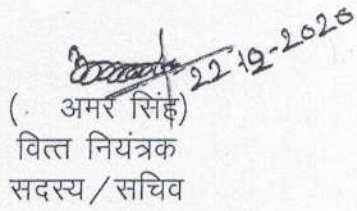 22-12-2020
( अमर सिंह)
वित्त नियंत्रक
सदस्य/सचिव